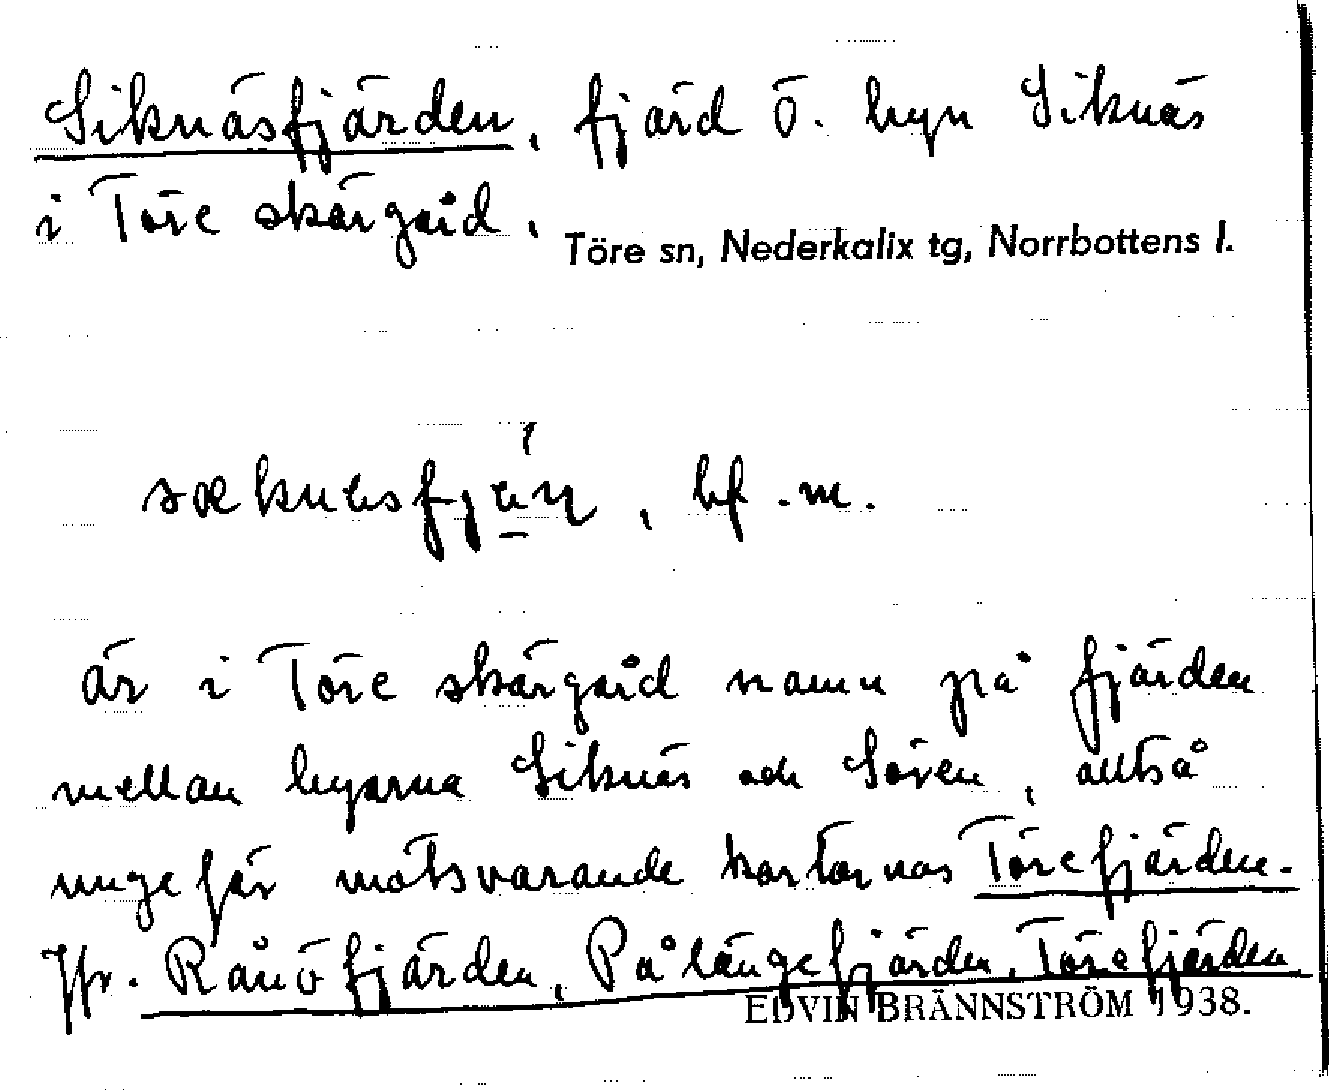 Siknäsfjärden, fjärd ö. byn Siknäs
i Töre skärgård.
Töre sn, Nederkalix tg, Norrbottens l.
bf. m.
är i Töre skärgård namn på fjärden
mellan byarna Siknäs och Sören, alltså
ungefär motsvarande kartornas Törefjärden.
Jfr. Rånöfjärden, Pålängefjärden, Törefjärden
EDVIN BRÄNNSTRÖM 1938.